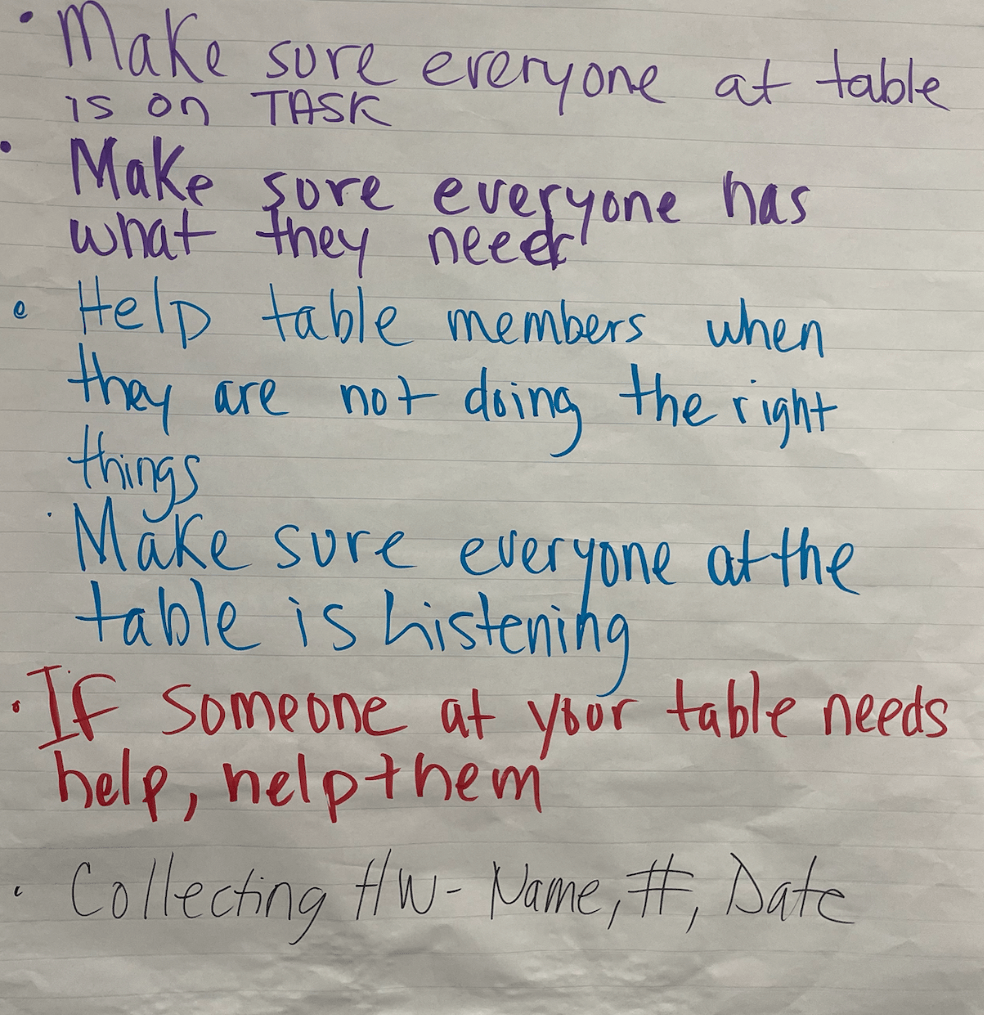 • Make sure everyone at table
is on TASK
• Make sure everyone has
what they need
• Help table members when
they are not doing the right
things
• Make sure everyone at the
table is listening
• If someone at your table needs
help, help them
• Collecting HW- Name, #, Date